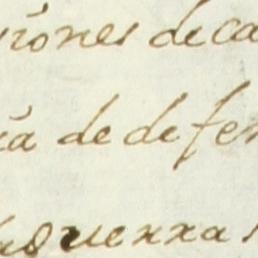 iones de ca
ia de defen
la guerra